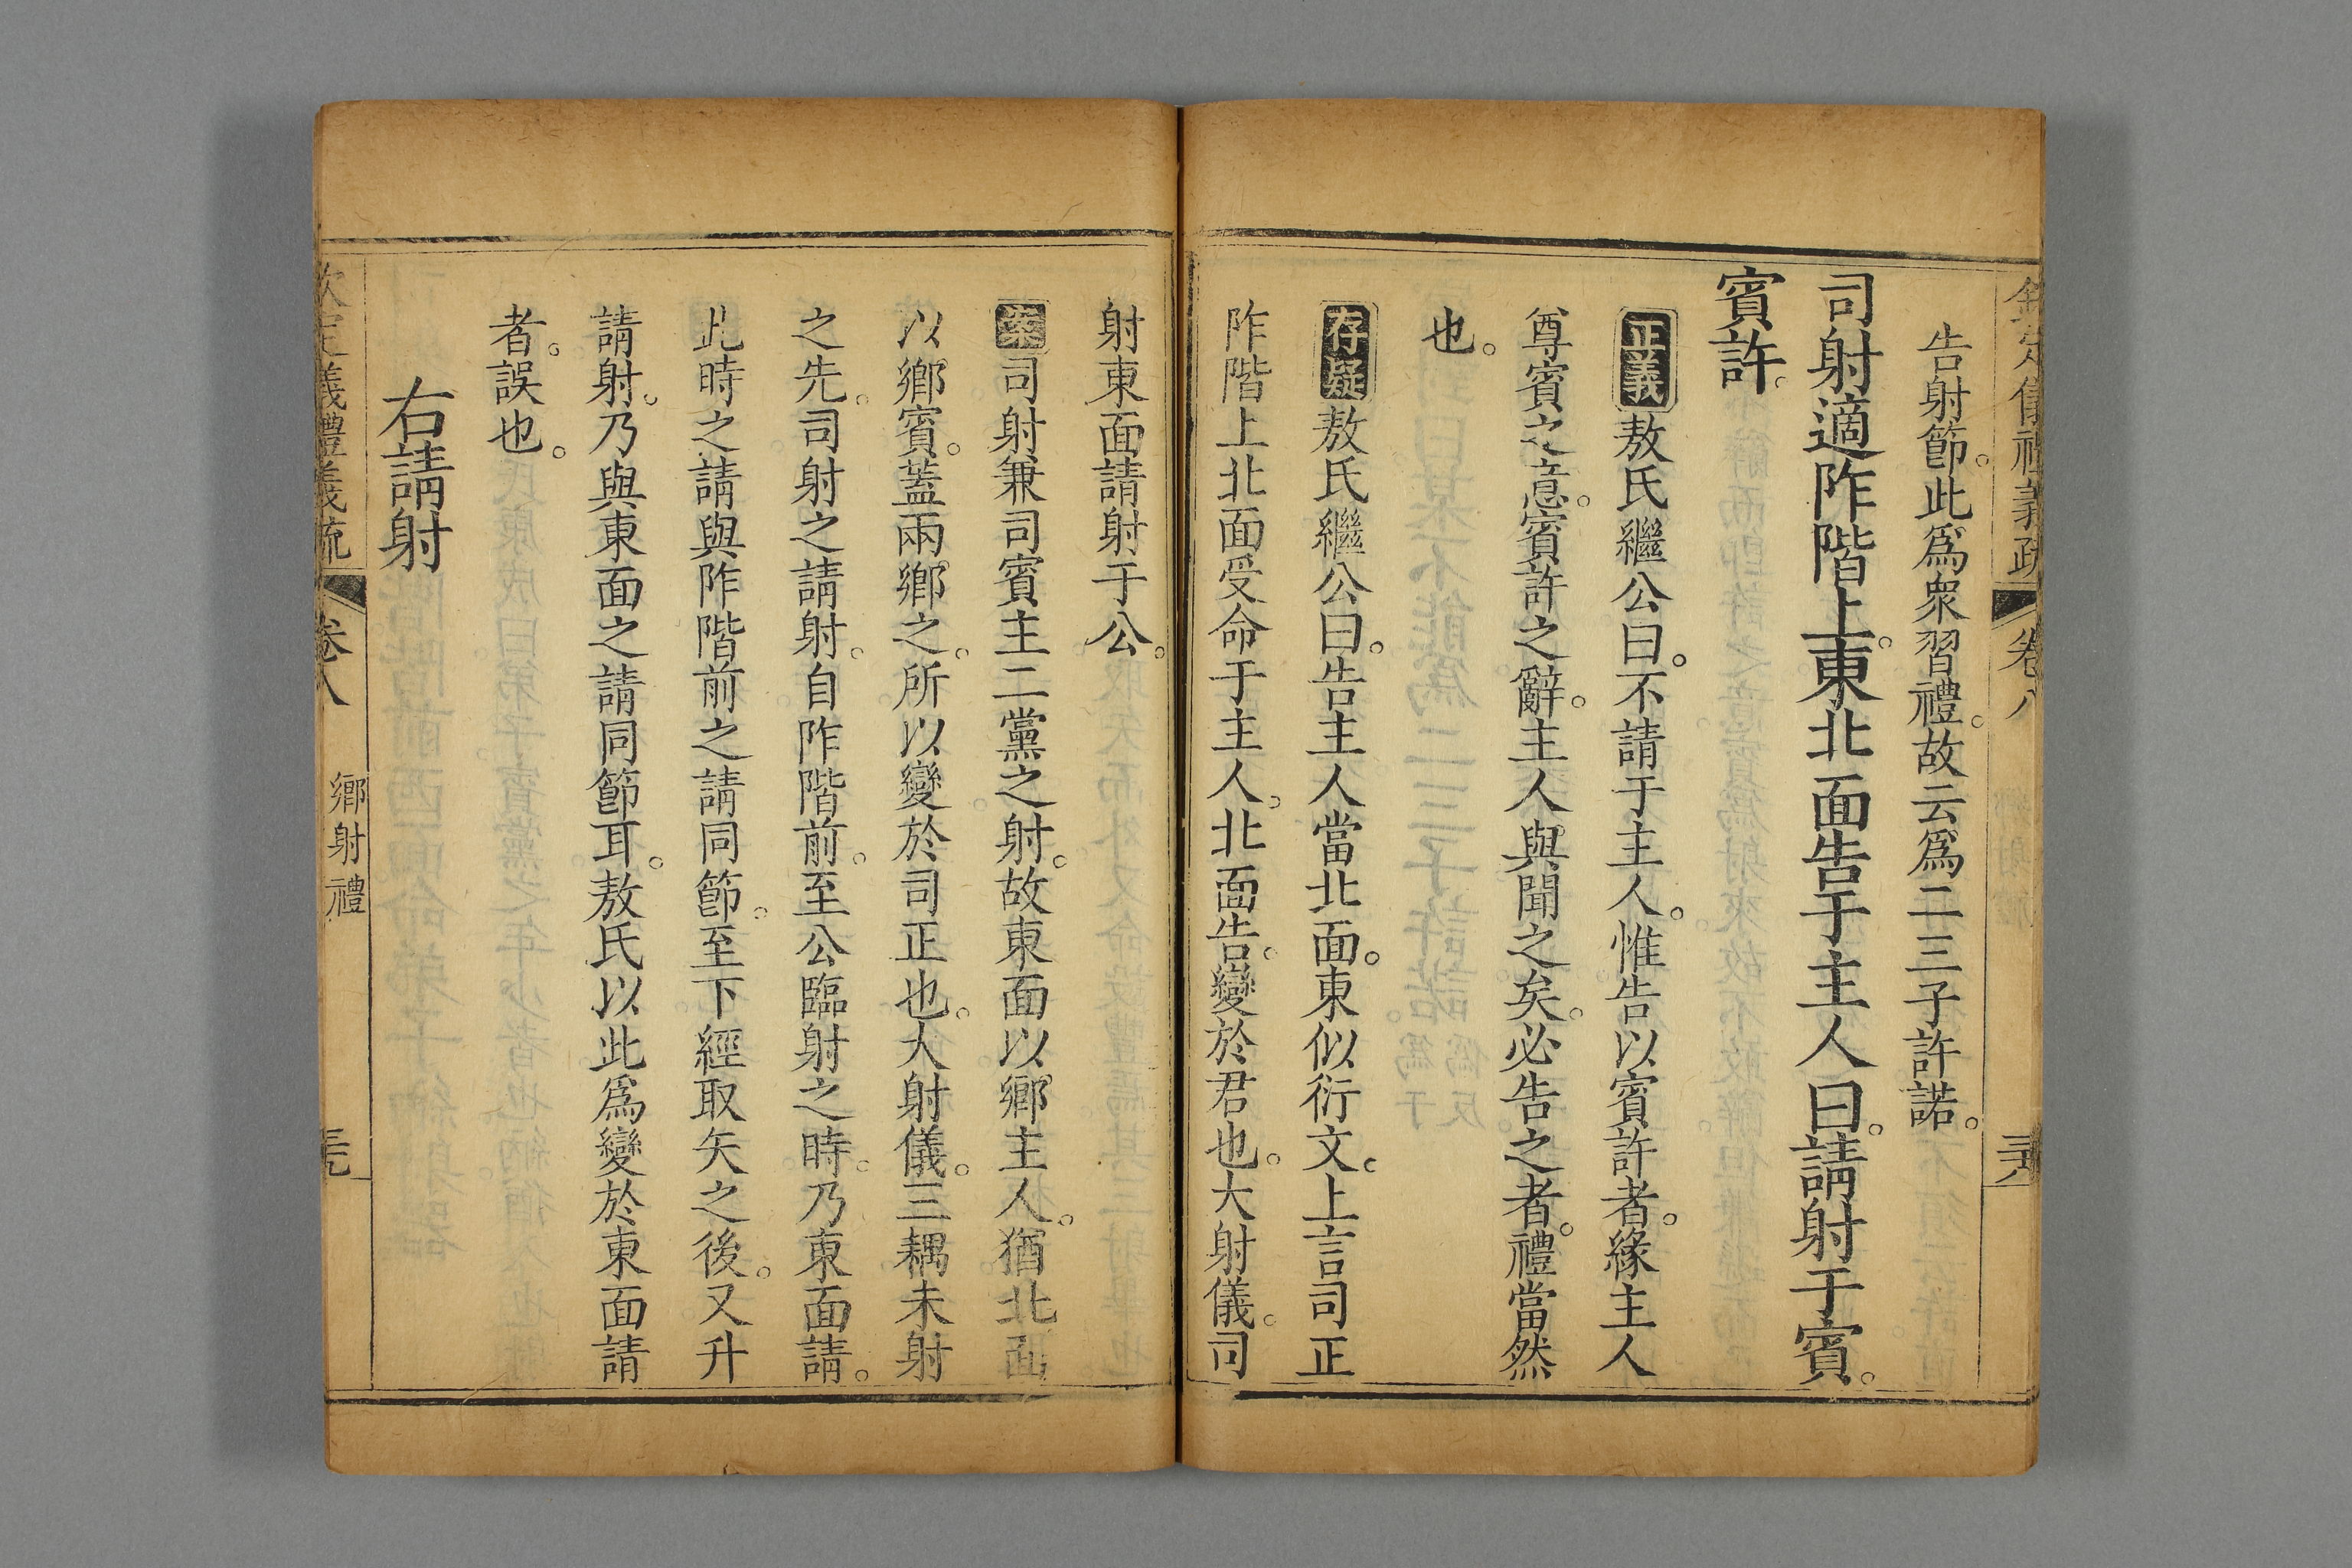 欽定儀禮義疏 卷八
告射節。此爲衆習禮。故云爲二三子許諾。
司射適阼階上。東北面告于主人曰。請射于賓。
賓許。
正義敖氏繼公曰。不請于主人。惟告以賓許者。緣主人
尊賓之意。賓許之辭。主人與聞之矣。必告之者。禮當然
也。
存疑敖氏繼公曰。告主人當北面。東似衍文。上言司正
阼階上北面受命于主人。北面告。變於君也。大射儀。司
射東面請射于公。
案司射兼司賓主二黨之射。故東面以鄉主人。猶北面
以鄉賓。蓋兩鄉之。所以變於司正也。大射儀。三耦未射
之先。司射之請射。自阼階前。至公臨射之時。乃東面請。
此時之請與阼階前之請同節。至下經取矢之後。又升
請射。乃與東面之請同節耳。敖氏以此爲變於東面請
者。誤也。
右請射
欽定儀禮義疏 卷八 鄉射禮